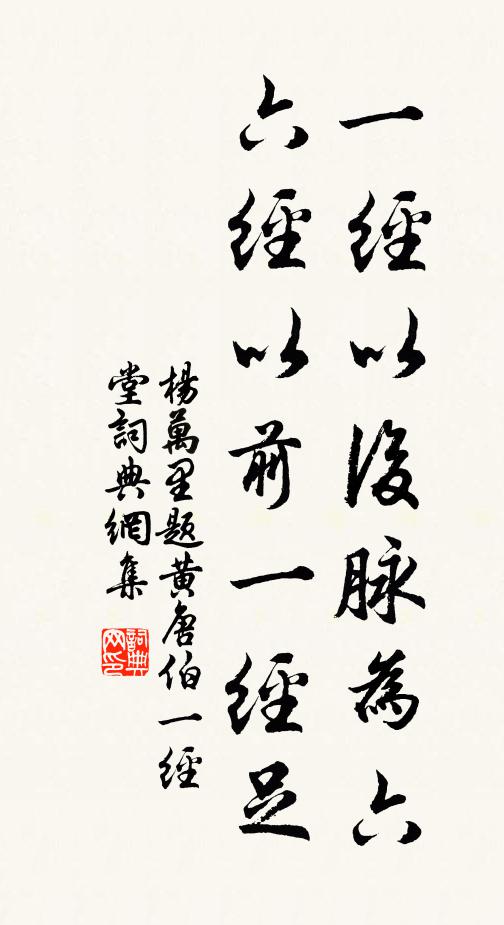 一經以後脉為六
六經以前一經足
楊萬里题黄唐伯一經
堂詞典網集
詞典网印